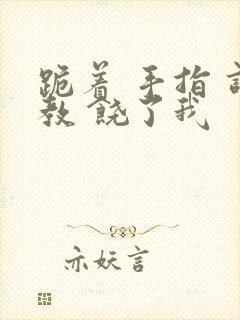 跪着 手指
教 饶了我
亦妖言